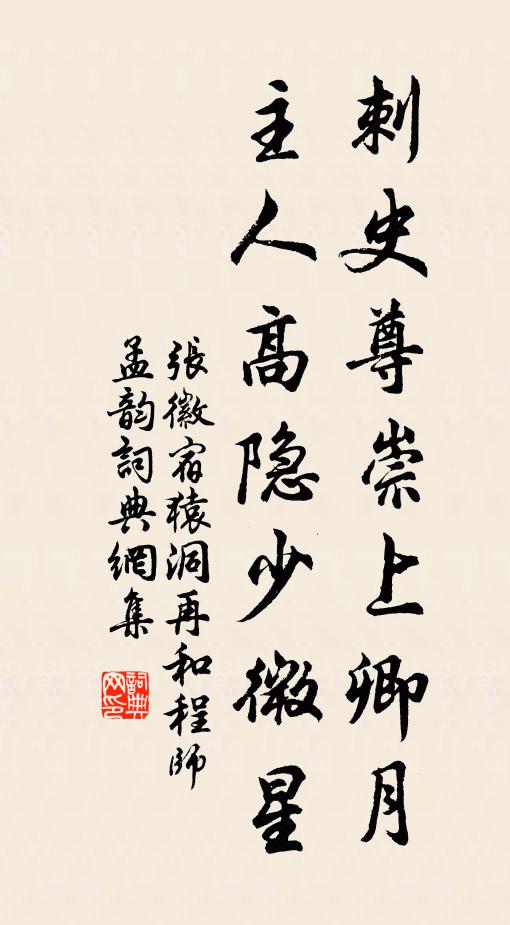 刺史尊崇上卿月
主人高隐少微星
張徽宿猿洞再和程師
孟韵詞典網集
詞典网印